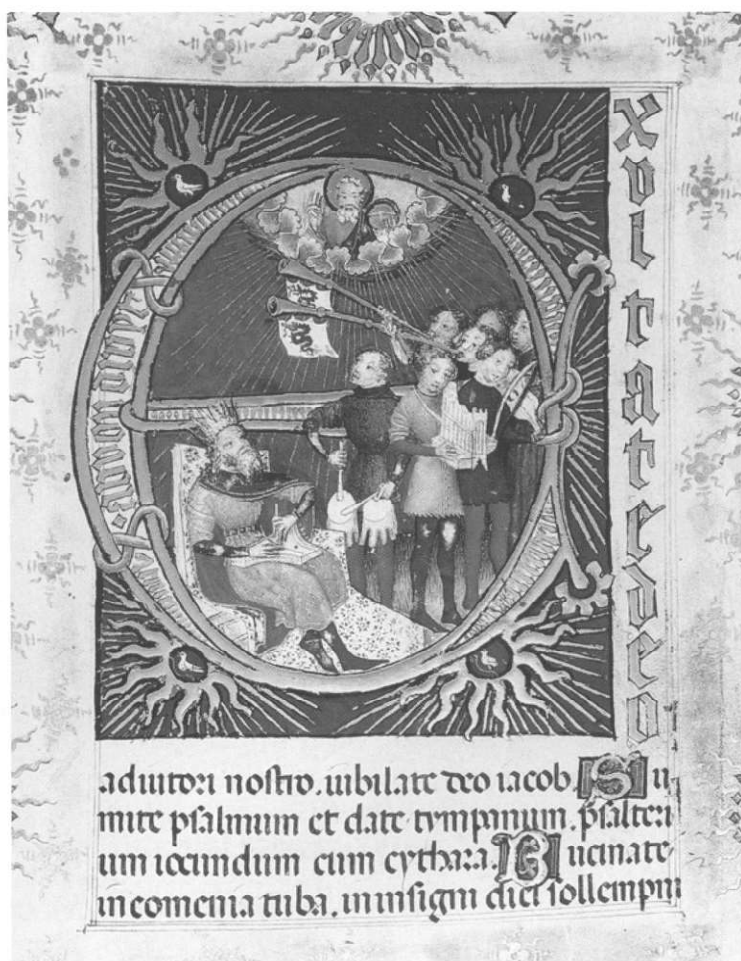 E
xultatedeo
adiutori nostro. iubilate deo iacob. Su
mite psalmum et date tympanum. psalteri
um iocundum cum cythara. Bucinate
in comenia tuba. in insigni diei sollempni